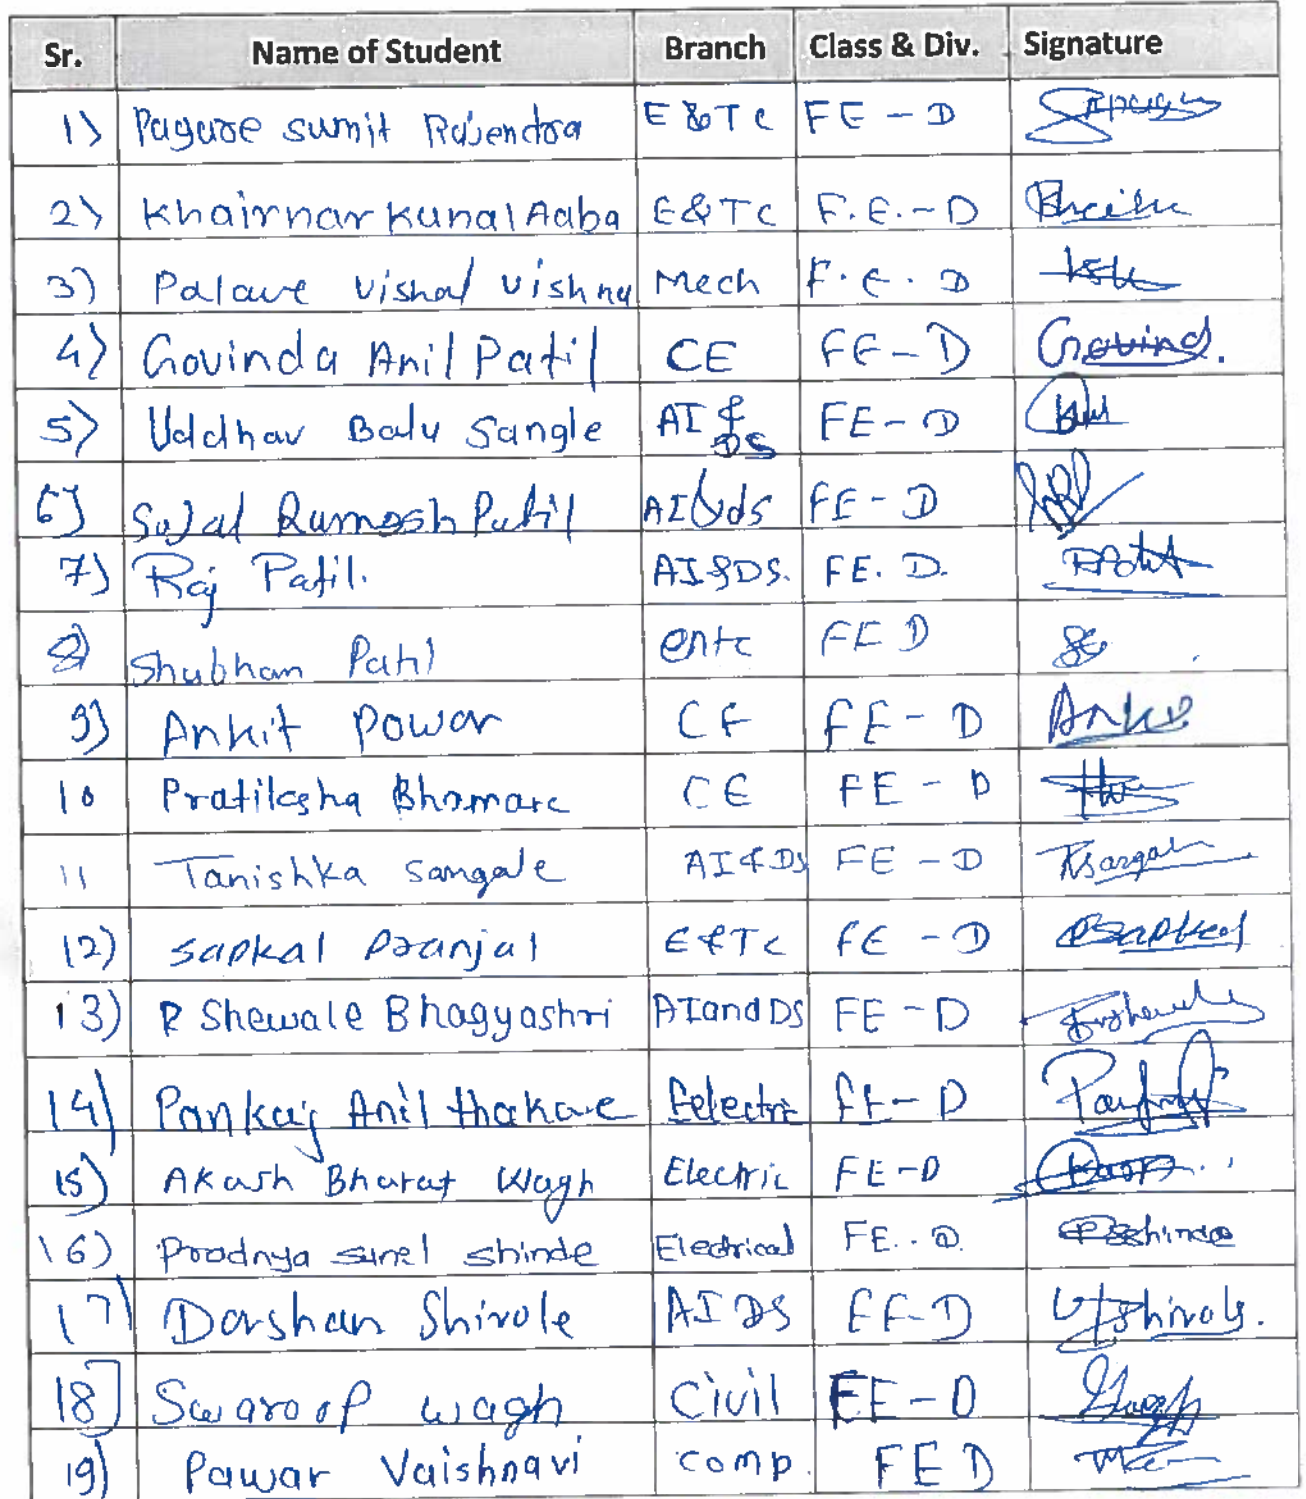 Sr. Name of Student Branch Class & Div. Signature
1) Pagare sumit Rajendra E&Tc FE - D
2) Khairnar Kunal Aaba E&Tc F.E.-D
3) Palave Vishal Vishnu Mech F.E. D
4) Govinda Anil Patil CE FE-D Govind.
5) Uddhav Balu Sangle AI & DS FE-D
6) Sujal Ramesh Patil AI&ds FE-D
7) Raj Patil. AI&DS. FE. D.
8) Shubham Patil entc FE D
9) Ankit Pawar CE FE-D Ankit
10 Pratiksha Bhamare CE FE-D
11 Tanishka Sangale AI&DS FE-D TSangale
12) Sapkal Pranjal E&Tc FE-D PSapkal
13) R Shewale Bhagyashri AIandDS FE-D
14) Pankaj Anil thakare Eelectric FE-D
15) Akash Bharat Wagh Electric FE-D
16) Pradnya sunil shinde Electrical FE..D. PSshinde
17) Darshan Shirole AI DS FE-D Shirole.
18) Swaroop wagh Civil FE-D
19) Pawar Vaishnavi comp. FE D